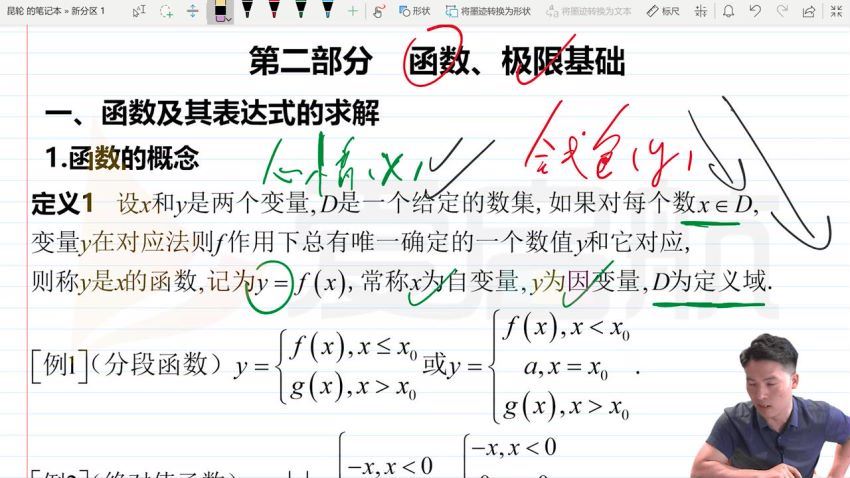 昆轮 的笔记本 » 新分区 1
形状 将墨迹转换为形状 将墨迹转换为文本 标尺
第二部分 函数、极限基础
一、函数及其表达式的求解
1.函数的概念
心情(x) 会式包(y)
定义1 设x和y是两个变量,D是一个给定的数集,如果对每个数x∈D,
变量y在对应法则f作用下总有唯一确定的一个数值y和它对应,
则称y是x的函数,记为y=f(x),常称x为自变量,y为因变量,D为定义域.
[例1](分段函数) y={f(x),x≤x₀ g(x),x>x₀ 或y={f(x),x<x₀ a,x=x₀ g(x),x>x₀ .
-x,x<0 -x,x<0